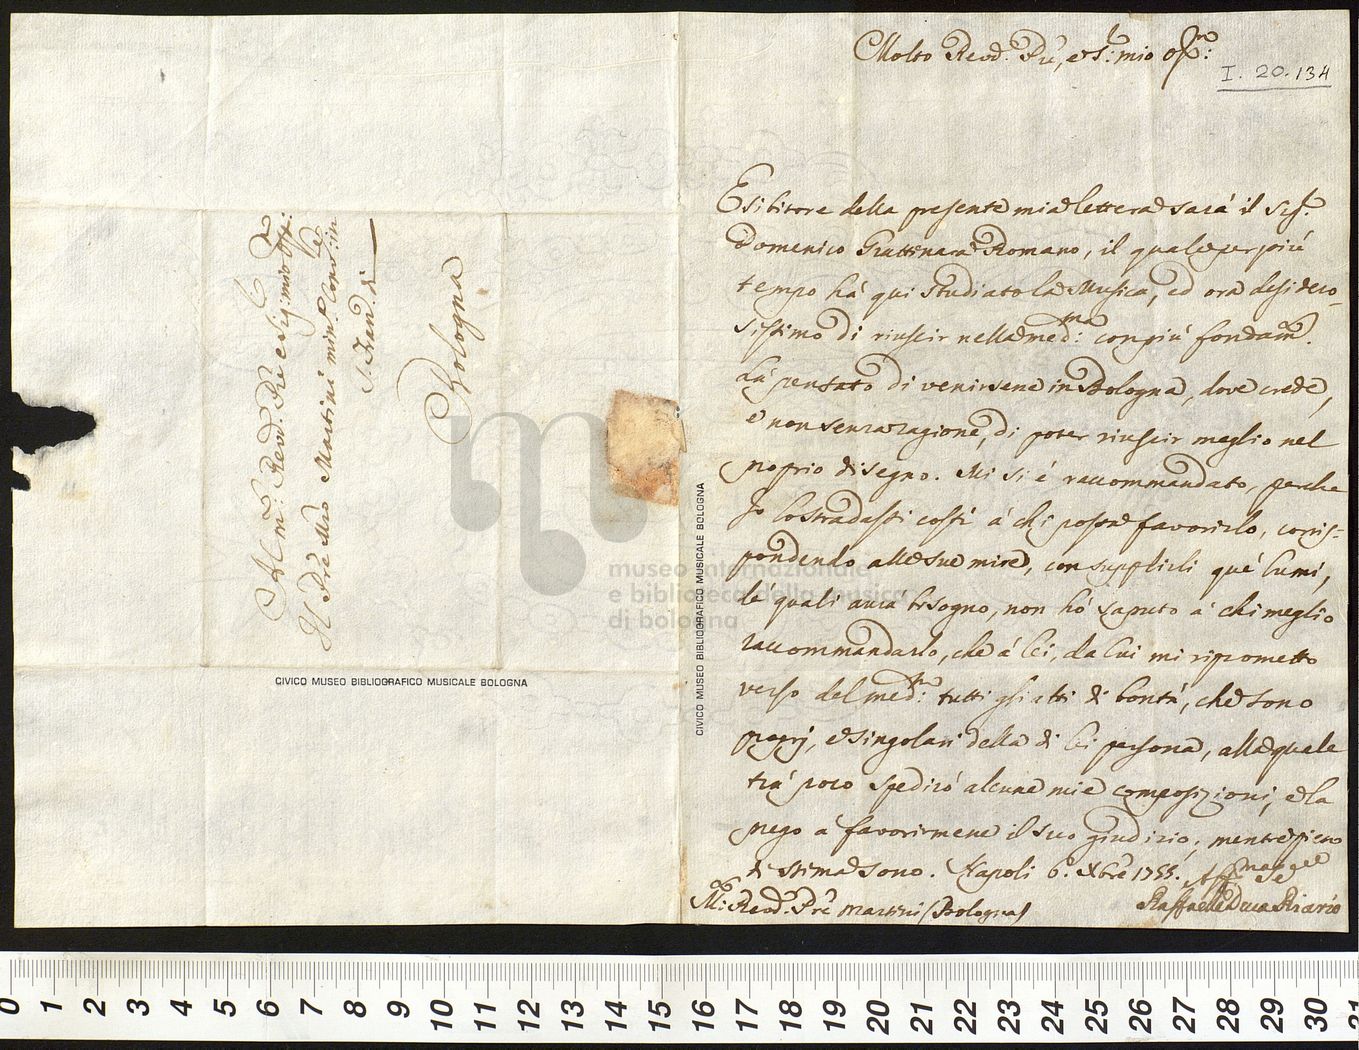 Molto Revd. Pre, e S.r mio Oss.mo:
I. 20. 134
Esibitore della presente mia lettera sará il Sig.r
Domenico Gattinara Romano, il quale per piú
tempo há qui studiato la Musica, ed ora desidero-
sissimo di riuscir nella med:ma con piú fondam.to
há pensato di venirsene in Bologna, dove crede,
e non senza ragione, di poter riuscir meglio nel
proprio disegno. Mi si é raccommandato, perche
Io lo stradassi costí á chi possa favorirlo, corris-
pondendo alle sue mire, con supplirli que' lumi,
de' quali avrá bisogno, non hó saputo á chi meglio
raccommandarlo, che á Lei, da Cui mi riprometto
verso del med:mo tutti gli atti di bontá, che sono
proprj, e singolari della di Lei persona, alla quale
trá poco spediró alcune mie composizioni, e la
prego a favorirmene il suo giudizio, mentre pieno
di stima sono. Napoli 6. Xbre 1755.
M: Revd. Pre Martini (Bologna)
Raffaele Duca Riario
Al M: Revd. Pre e Sig. mio Oss:
Il Pre Mro Martini min. Conv. in
S. Fran. di
Bologna
CIVICO MUSEO BIBLIOGRAFICO MUSICALE BOLOGNA
CIVICO MUSEO BIBLIOGRAFICO MUSICALE BOLOGNA
m
museo internazionale
e biblioteca della musica
di bologna
0 1 2 3 4 5 6 7 8 9 10 11 12 13 14 15 16 17 18 19 20 21 22 23 24 25 26 27 28 29 30 31